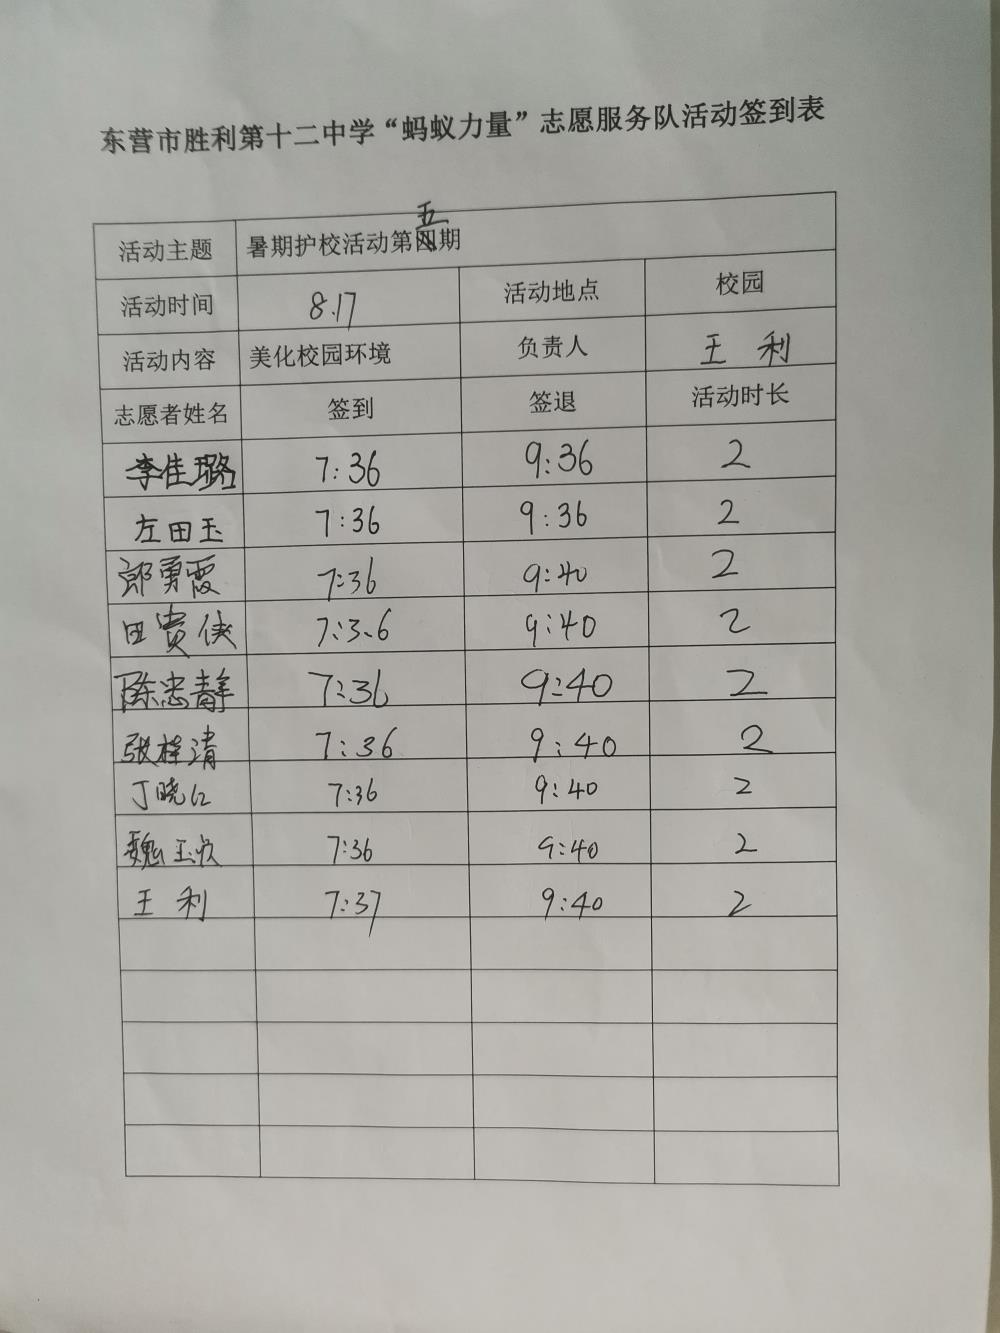 东营市胜利第十二中学“蚂蚁力量”志愿服务队活动签到表
活动主题 暑期护校活动第五期
活动时间 8.17 活动地点 校园
活动内容 美化校园环境 负责人 王利
志愿者姓名 签到 签退 活动时长
李佳璐 7:36 9:36 2
左田玉 7:36 9:36 2
郎勇霞 7:36 9:40 2
田贵侠 7:3.6 9:40 2
陈忠静 7:36 9:40 2
张梓清 7:36 9:40 2
丁晓红 7:36 9:40 2
魏玉 7:36 9:40 2
王利 7:37 9:40 2